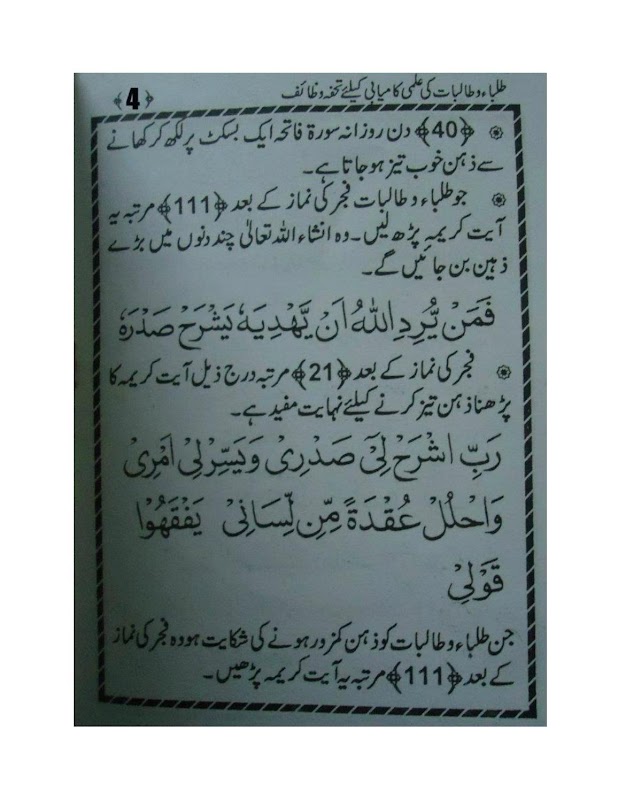 طلباء و طالبات کی علمی کامیابی کیلئے تحفہ وظائف ﴿4﴾
﴿40﴾ دن روزانہ سورۃ فاتحہ ایک بسکٹ پر لکھ کر کھانے
سے ذہن خوب تیز ہو جاتا ہے۔
جو طلباء و طالبات فجر کی نماز کے بعد ﴿111﴾ مرتبہ یہ
آیت کریمہ پڑھ لیں۔ وہ انشاء اللہ تعالیٰ چند دنوں میں بڑے
ذہین بن جائیں گے۔
فَمَنْ يُّرِدِ اللّٰهُ اَنْ يَّهْدِيَهٗ يَشْرَحْ صَدْرَهٗ
فجر کی نماز کے بعد ﴿21﴾ مرتبہ درج ذیل آیت کریمہ کا
پڑھنا ذہن تیز کرنے کیلئے نہایت مفید ہے۔
رَبِّ اشْرَحْ لِیْ صَدْرِیْ وَیَسِّرْ لِیْ اَمْرِیْ
وَاحْلُلْ عُقْدَةً مِّنْ لِّسَانِیْ یَفْقَهُوْا
قَوْلِیْ
جن طلباء و طالبات کو ذہن کمزور ہونے کی شکایت ہو وہ فجر کی نماز
کے بعد ﴿111﴾ مرتبہ یہ آیت کریمہ پڑھیں۔